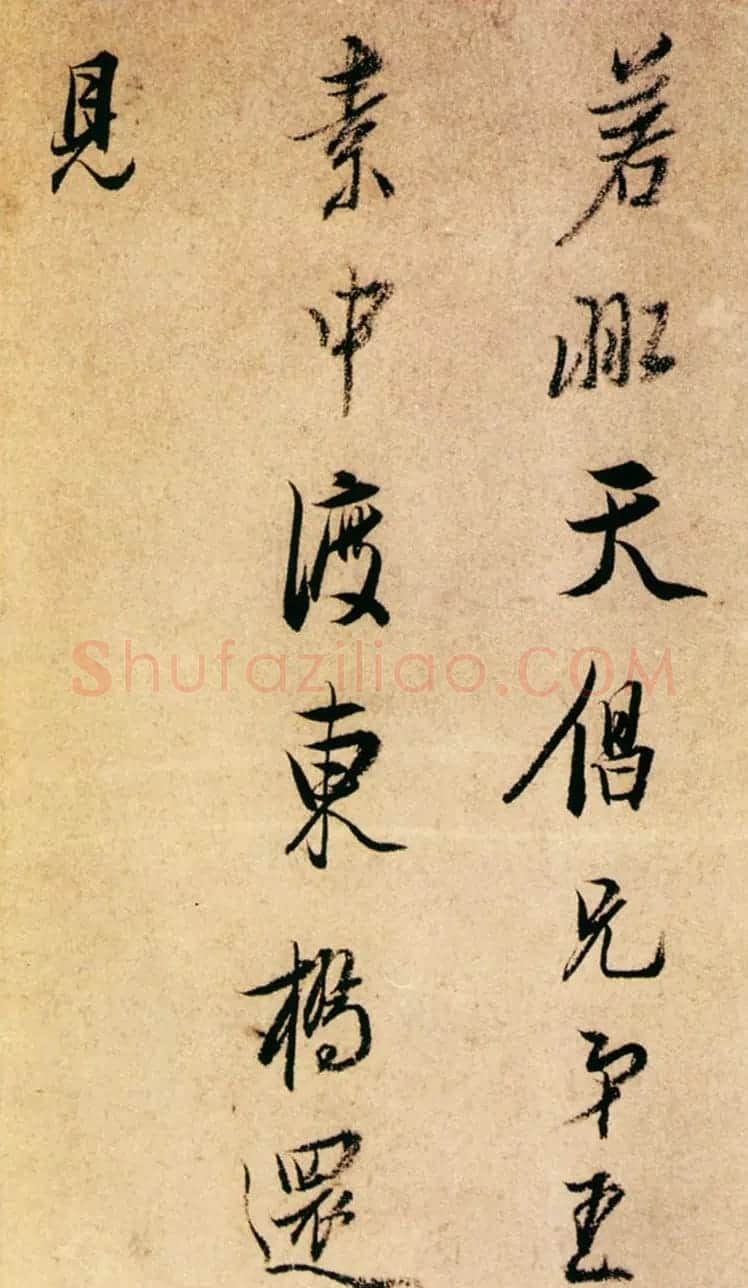 若天倡兄弟至
素中渡東橋還
見
Shufaziliao.COM